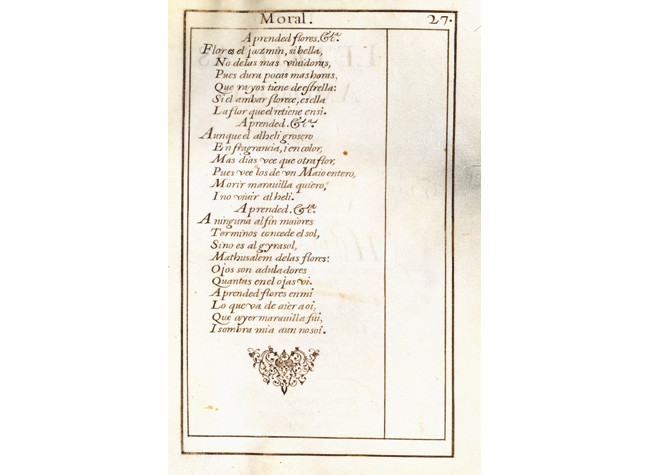 Moral. 27.
Aprended flores. &tª.
Flor es el jazmin, si bella,
No de las mas viuidoras,
Pues dura pocas mas horas,
Que rayos tiene de estrella:
Si el ambar florece, es ella
La flor que el retiene en si.
Aprended. &tª.
Aunque el alheli grosero
En fragrancia, i en color,
Mas dias vee que otra flor,
Pues vee los de vn Maio entero,
Morir marauilla quiero,
I no viuir alheli.
Aprended. &tª.
A ninguna al fin maiores
Terminos concede el sol,
Sino es al gyrasol,
Mathusalem de las flores:
Ojos son aduladores
Quantas en el ojas vi.
Aprended flores en mi
Lo que va de aièr a oi,
Que ayer marauilla fùi,
I sombra mia aun no soi.